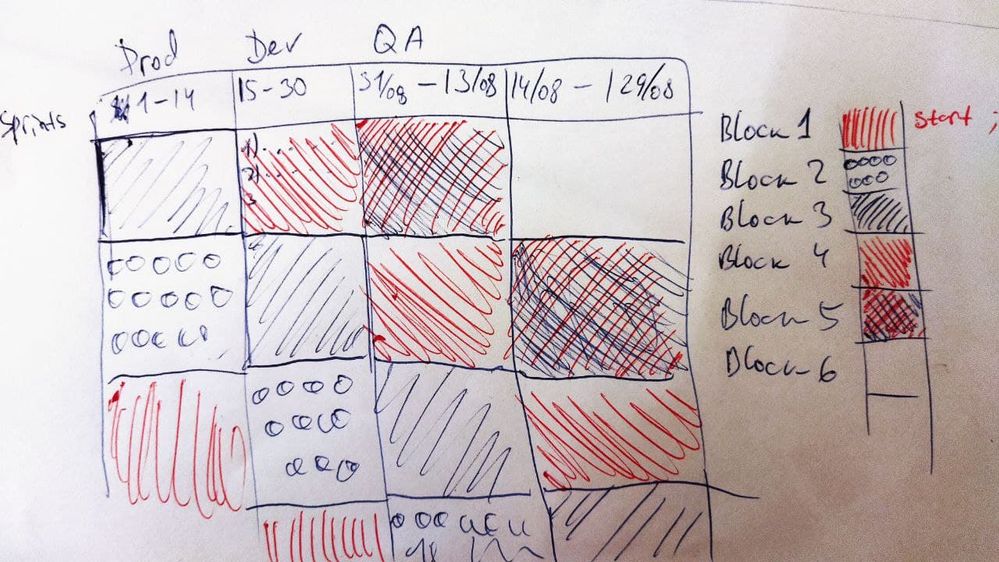 Prod Dev QA
Sprints
1-14 15-30 31/08 - 13/08 14/08 - 29/08
1)
2)
3
Block 1 Start
Block 2
Block 3
Block 4
Block 5
Block 6